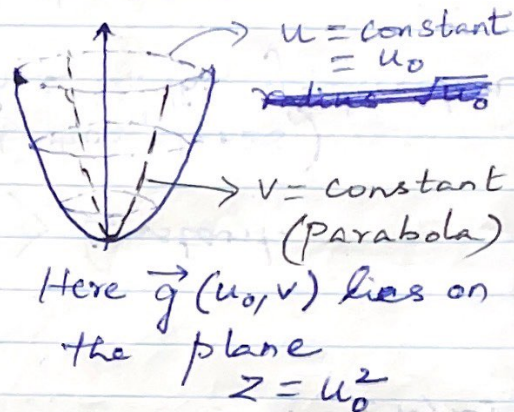 u = constant
= u₀
radius √u₀
v = constant
(Parabola)
Here g⃗ (u₀, v) lies on
the plane
z = u₀²